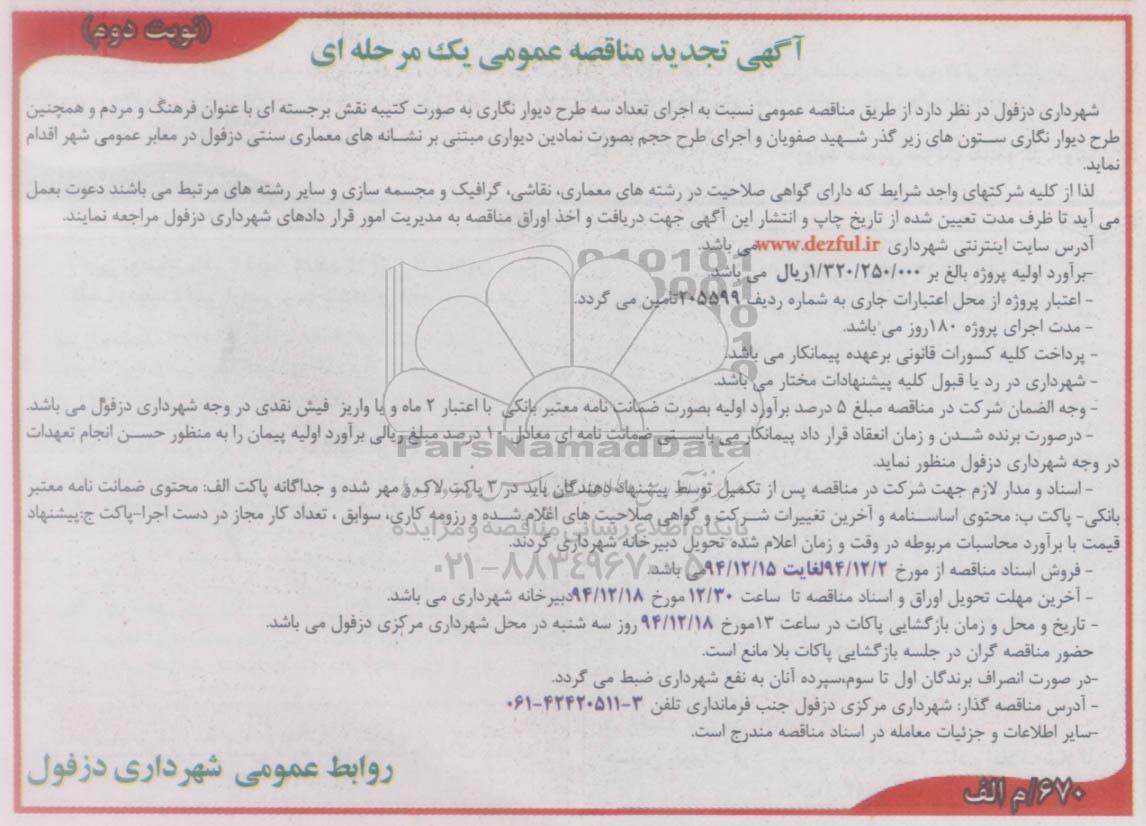 (نوبت دوم)
آگهی تجدید مناقصه عمومی یک مرحله ای
شهرداری دزفول در نظر دارد از طریق مناقصه عمومی نسبت به اجرای تعداد سه طرح دیوار نگاری به صورت کتیبه نقش برجسته ای با عنوان فرهنگ و مردم و همچنین
طرح دیوار نگاری ستون های زیر گذر شهید صفویان و اجرای طرح حجم بصورت نمادین دیواری مبتنی بر نشانه های معماری سنتی دزفول در معابر عمومی شهر اقدام
نماید.
لذا از کلیه شرکتهای واجد شرایط که دارای گواهی صلاحیت در رشته های معماری، نقاشی، گرافیک و مجسمه سازی و سایر رشته های مرتبط می باشند دعوت بعمل
می آید تا ظرف مدت تعیین شده از تاریخ چاپ و انتشار این آگهی جهت دریافت و اخذ اوراق مناقصه به مدیریت امور قرار دادهای شهرداری دزفول مراجعه نمایند.
آدرس سایت اینترنتی شهرداری www.dezful.ir می باشد.
-برآورد اولیه پروژه بالغ بر ۱/۳۲۰/۲۵۰/۰۰۰ریال می باشد.
- اعتبار پروژه از محل اعتبارات جاری به شماره ردیف ۲۰۵۵۹۹تامین می گردد.
- مدت اجرای پروژه ۱۸۰روز می باشد.
- پرداخت کلیه کسورات قانونی برعهده پیمانکار می باشد.
- شهرداری در رد یا قبول کلیه پیشنهادات مختار می باشد.
- وجه الضمان شرکت در مناقصه مبلغ ۵ درصد برآورد اولیه بصورت ضمانت نامه معتبر بانکی با اعتبار ۲ ماه و یا واریز فیش نقدی در وجه شهرداری دزفول می باشد.
- درصورت برنده شدن و زمان انعقاد قرار داد پیمانکار می بایستی ضمانت نامه ای معادل ۱۰ درصد مبلغ ریالی برآورد اولیه پیمان را به منظور حسن انجام تعهدات
در وجه شهرداری دزفول منظور نماید.
- اسناد و مدار لازم جهت شرکت در مناقصه پس از تکمیل توسط پیشنهاد دهندگان باید در ۳ پاکت لاک و مهر شده و جداگانه پاکت الف: محتوی ضمانت نامه معتبر
بانکی- پاکت ب: محتوی اساسنامه و آخرین تغییرات شرکت و گواهی صلاحیت های اعلام شده و رزومه کاری، سوابق ، تعداد کار مجاز در دست اجرا-پاکت ج:پیشنهاد
قیمت با برآورد محاسبات مربوطه در وقت و زمان اعلام شده تحویل دبیرخانه شهرداری گردند.
- فروش اسناد مناقصه از مورخ ۹۴/۱۲/۲لغایت ۹۴/۱۲/۱۵می باشد.
- آخرین مهلت تحویل اوراق و اسناد مناقصه تا ساعت ۱۲/۳۰مورخ ۹۴/۱۲/۱۸دبیرخانه شهرداری می باشد.
- تاریخ و محل و زمان بازگشایی پاکات در ساعت ۱۳مورخ ۹۴/۱۲/۱۸ روز سه شنبه در محل شهرداری مرکزی دزفول می باشد.
حضور مناقصه گران در جلسه بازگشایی پاکات بلا مانع است.
-در صورت انصراف برندگان اول تا سوم،سپرده آنان به نفع شهرداری ضبط می گردد.
- آدرس مناقصه گذار: شهرداری مرکزی دزفول جنب فرمانداری تلفن ۳-۰۶۱-۴۲۴۲۰۵۱۱
-سایر اطلاعات و جزئیات معامله در اسناد مناقصه مندرج است.
روابط عمومی شهرداری دزفول
۶۷۰/م الف
ParsNamadData
پایگاه اطلاع رسانی مناقصه و مزایده
۰۲۱-۸۸۳۴۹۶۷۰-۵